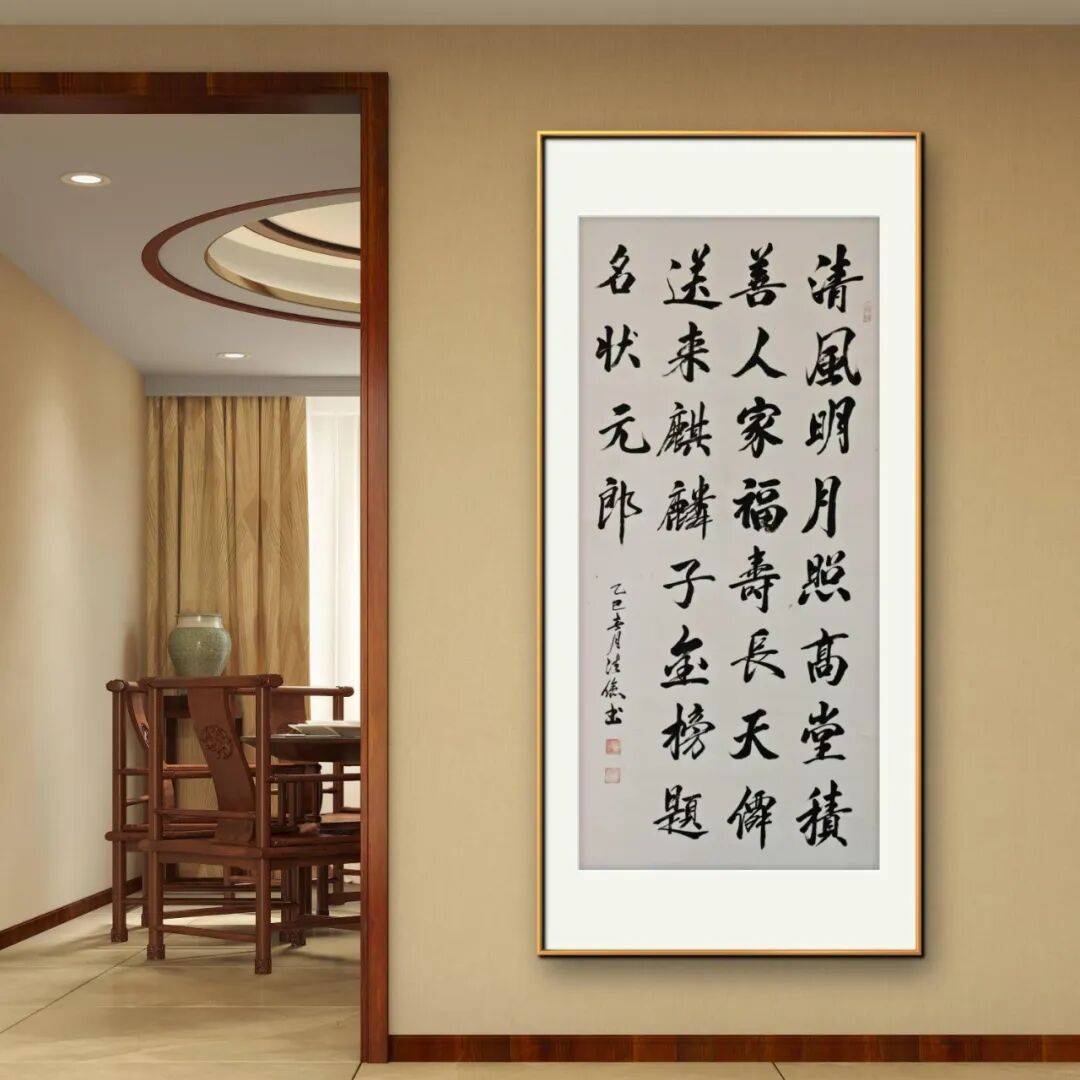 清風明月照高堂積
善人家福壽長天僊
送来麒麟子金榜題
名状元郎
乙巳春月法儉書